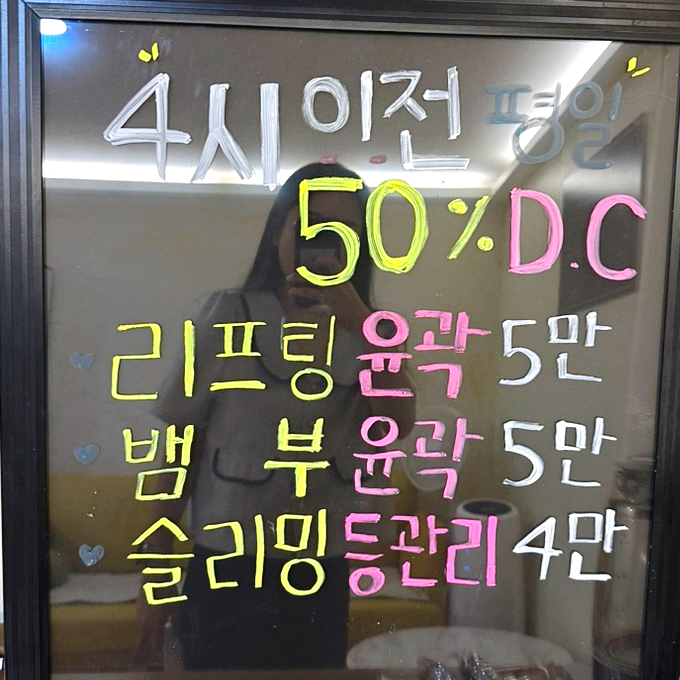 4시 이전 평일
50% D.C
리프팅 윤곽 5만
뱀부 윤곽 5만
슬리밍 등관리 4만